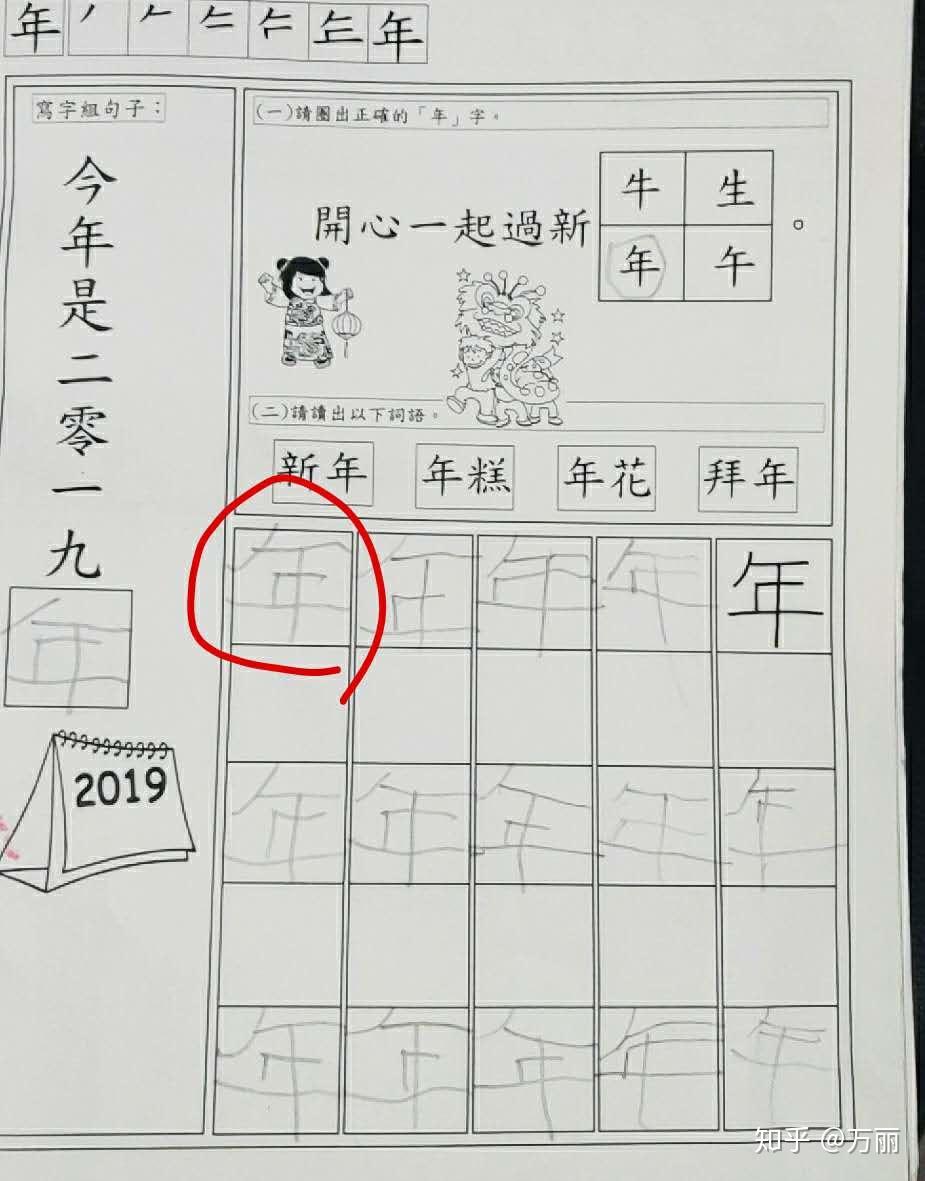 年 年
寫字組句子：
今年是二零一九
年
2019
(一)請圈出正確的「年」字。
牛 生
開心一起過新 。
年 午
(二)請讀出以下詞語。
新年 年糕 年花 拜年
年 年 年 年 年
年 年 年 年 年
年 年 年 年 年
知乎 @万丽